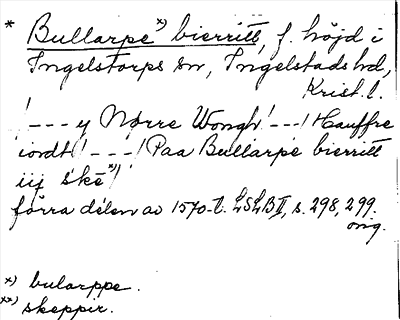 * Bullarpe x) bierritt, f. höjd i
Ingelstorps sn, Ingelstads hd,
Krist. l.
/---y Nørre Wongh/---/Hauffre
iordt/---/Paa Bullarpe bierritt
iij skē xx)/
förra delen av 1570-t. LSLB II, s. 298, 299.
orig.
x) bularppe.
xx) skeppir.